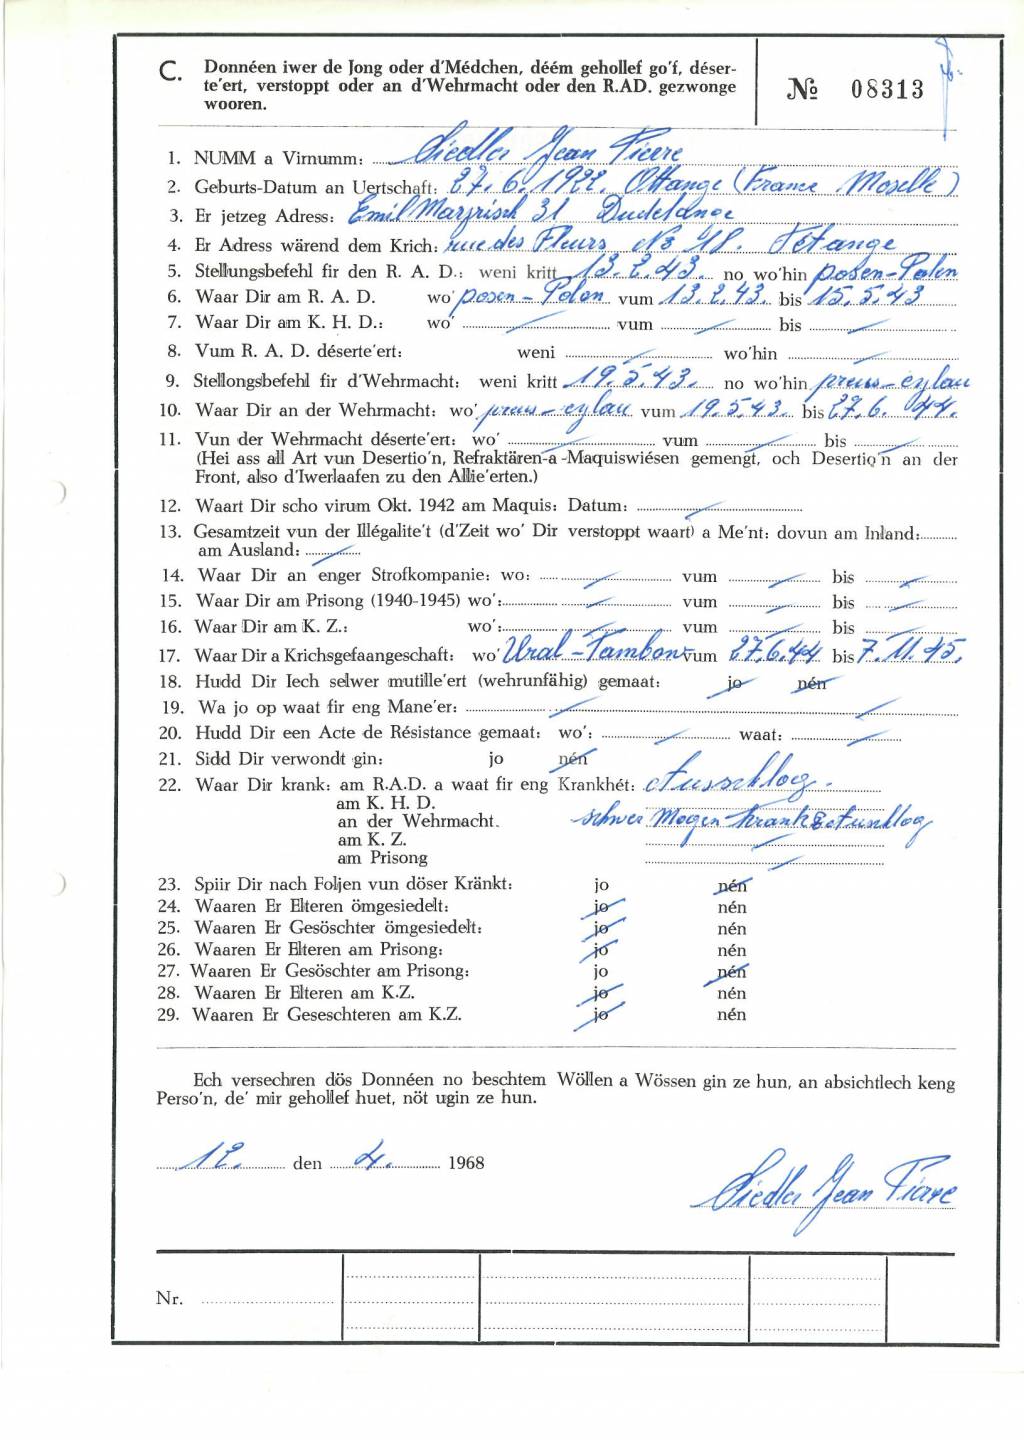 C. Donnéen iwer de Jong oder d'Médchen, déém gehollef go'f, déser-
te'ert, verstoppt oder an d'Wehrmacht oder den R.AD. gezwonge
wooren.
№ 08313
1. NUMM a Virnumm: Siedler Jean Pierre
2. Geburts-Datum an Uertschaft: 27.6.1922. Ottange (France Moselle)
3. Er jetzeg Adress: Emil Mayrisch 31 Dudelange
4. Er Adress wärend dem Krich: rue des Fleurs No 18. Tétange
5. Stellungsbefehl fir den R. A. D.: weni kritt 13.2.43. no wo'hin posen-Polen
6. Waar Dir am R. A. D. wo' posen - Polen vum 13.2.43. bis 15.5.43
7. Waar Dir am K. H. D.: wo' vum bis
8. Vum R. A. D. déserte'ert: weni wo'hin
9. Stellongsbefehl fir d'Wehrmacht: weni kritt 19.5.43. no wo'hin preus-eylau
10. Waar Dir an der Wehrmacht: wo' preus-eylau vum 19.5.43. bis 27.6. 44.
11. Vun der Wehrmacht déserte'ert: wo' vum bis
(Hei ass all Art vun Desertio'n, Refraktären-a -Maquiswiésen gemengt, och Desertio'n an der
Front, also d'Iwerlaafen zu den Allie'erten.)
12. Waart Dir scho virum Okt. 1942 am Maquis: Datum:
13. Gesamtzeit vun der Illégalite't (d'Zeit wo' Dir verstoppt waart) a Me'nt: dovun am Inland:
am Ausland:
14. Waar Dir an enger Strofkompanie: wo: vum bis
15. Waar Dir am Prisong (1940-1945) wo': vum bis
16. Waar Dir am K. Z.: wo': vum bis
17. Waar Dir a Krichsgefaangeschaft: wo' Ural - Tambow vum 27.6.44 bis 7.11.45.
18. Hudd Dir Iech selwer mutille'ert (wehrunfähig) gemaat: jo nén
19. Wa jo op waat fir eng Mane'er:
20. Hudd Dir een Acte de Résistance gemaat: wo': waat:
21. Sidd Dir verwondt gin: jo nén
22. Waar Dir krank: am R.A.D. a waat fir eng Krankhét: Ausschlag.
am K. H. D.
an der Wehrmacht. schwer Magen krank
am K. Z.
am Prisong
23. Spiir Dir nach Foljen vun döser Kränkt: jo nén
24. Waaren Er Elteren ömgesiedelt: jo nén
25. Waaren Er Gesöschter ömgesiedelt: jo nén
26. Waaren Er Elteren am Prisong: jo nén
27. Waaren Er Gesöschter am Prisong: jo nén
28. Waaren Er Elteren am K.Z. jo nén
29. Waaren Er Geseschteren am K.Z. jo nén
Ech versechren dös Donnéen no beschtem Wöllen a Wössen gin ze hun, an absichtlech keng
Perso'n, de' mir gehollef huet, nöt ugin ze hun.
12. den 4. 1968
Siedler Jean Pierre
Nr.